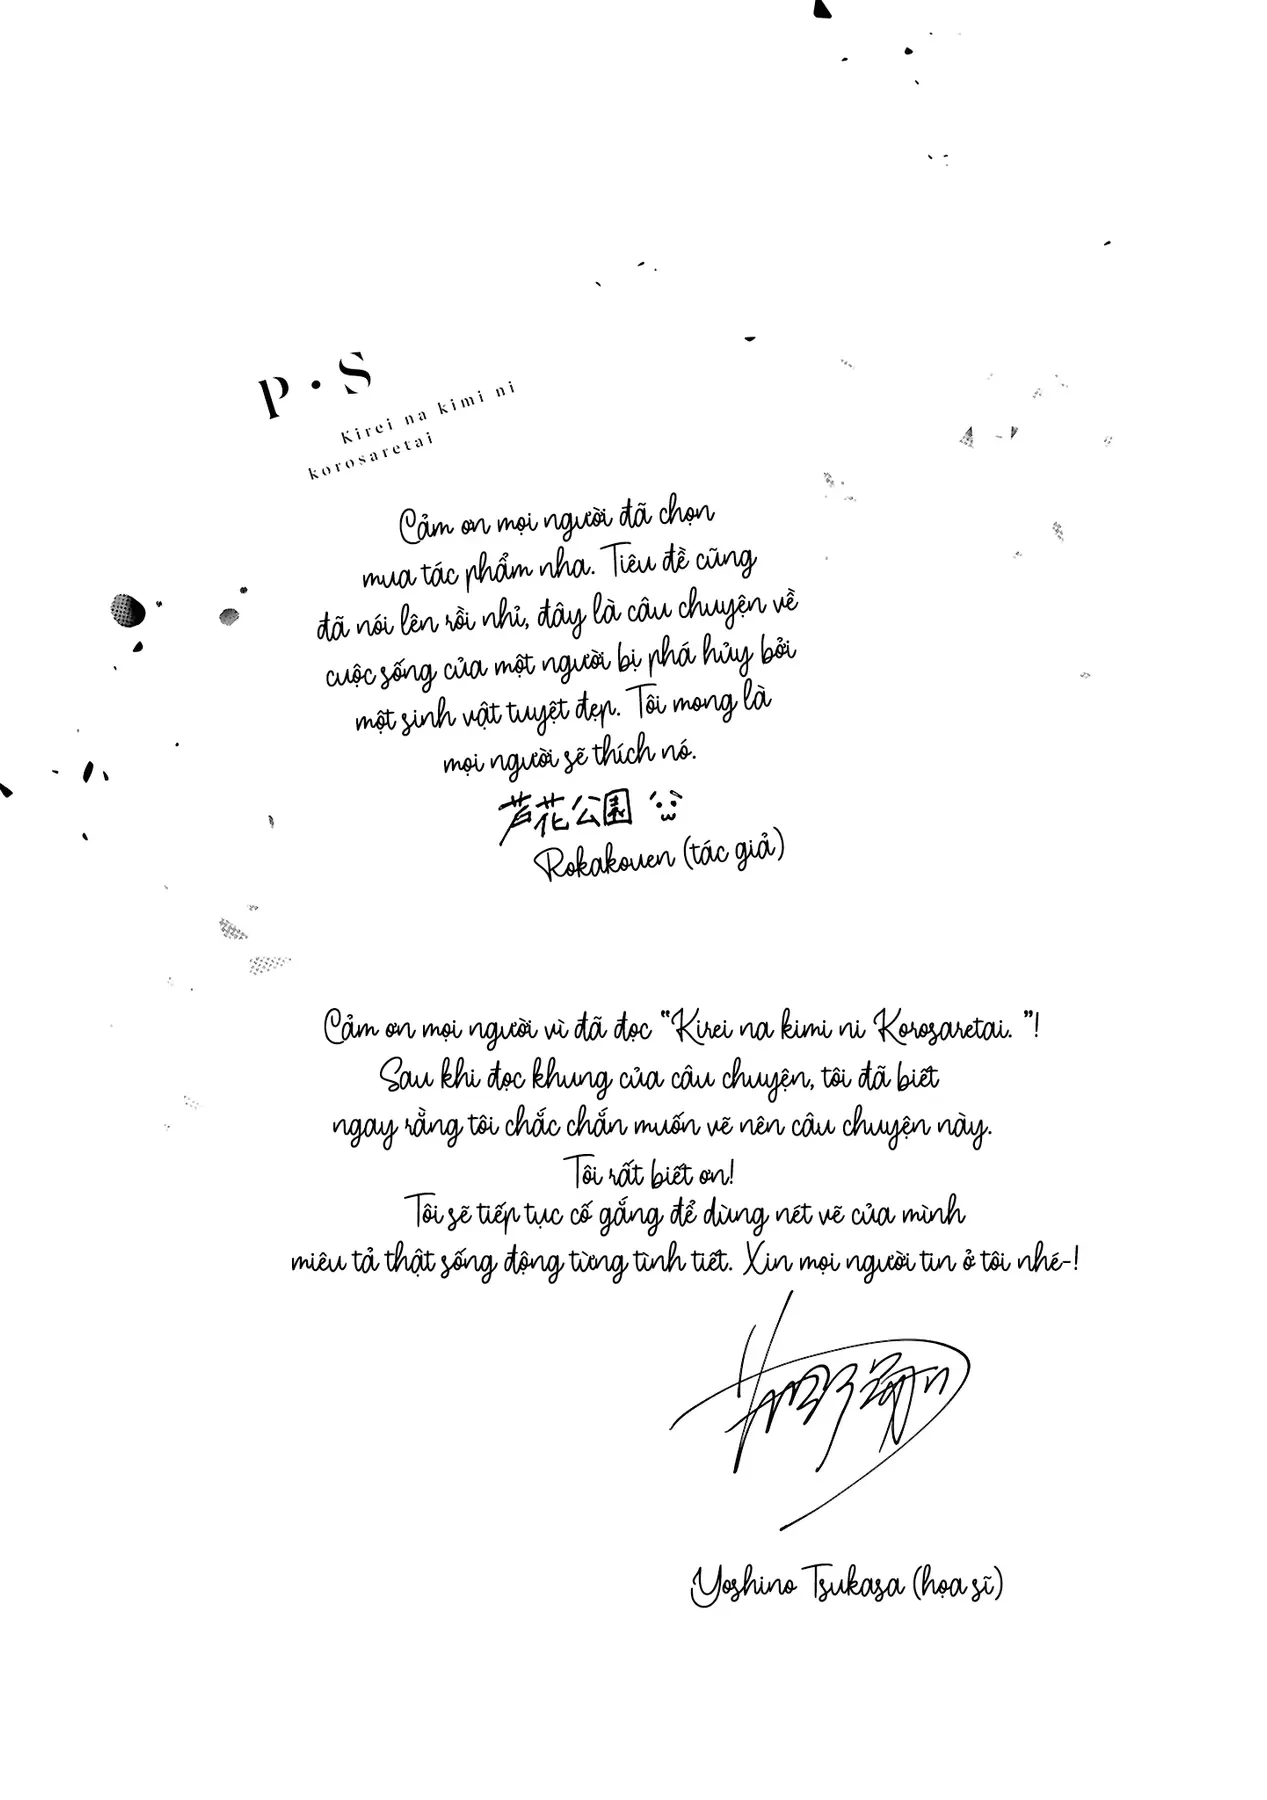 P·S
Kirei na kimi ni
korosaretai
Cảm ơn mọi người đã chọn
mua tác phẩm nha. Tiêu đề cũng
đã nói lên rồi nhỉ, đây là câu chuyện về
cuộc sống của một người bị phá hủy bởi
một sinh vật tuyệt đẹp. Tôi mong là
mọi người sẽ thích nó.
芦花公園
Rokakouen (tác giả)
Cảm ơn mọi người vì đã đọc “Kirei na kimi ni Korosaretai. ”!
Sau khi đọc khung của câu chuyện, tôi đã biết
ngay rằng tôi chắc chắn muốn vẽ nên câu chuyện này.
Tôi rất biết ơn!
Tôi sẽ tiếp tục cố gắng để dùng nét vẽ của mình
miêu tả thật sống động từng tình tiết. Xin mọi người tin ở tôi nhé-!
Yoshino Tsukasa (họa sĩ)